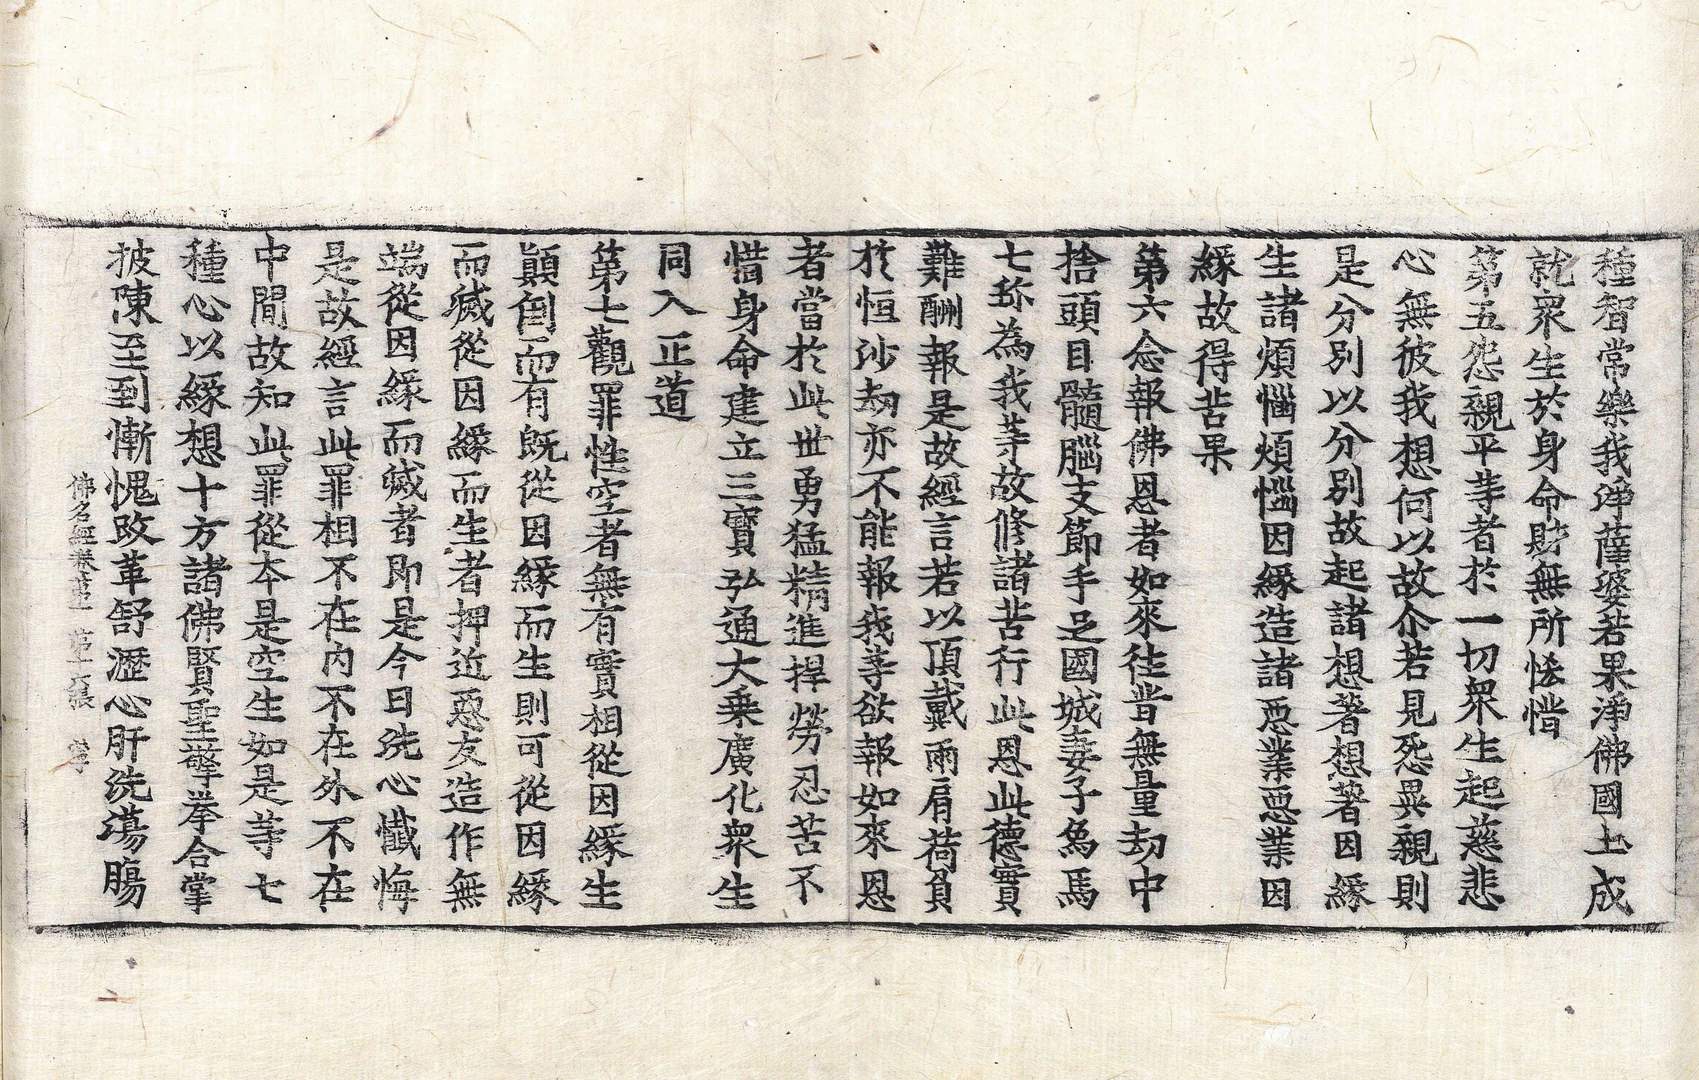 種智常樂我淨薩婆若果淨佛國土成
就衆生於身命財無所悋惜
第五怨親平等者於一切衆生起慈悲
心無彼我想何以故尒若見怨異親則
是分別以分別故起諸想著想著因緣
生諸煩惱煩惱因緣造諸惡業惡業因
緣故得苦果
第六念報佛恩者如來徃昔無量劫中
捨頭目髓腦支節手足國城妻子象馬
七珎為我等故修諸苦行此恩此德實
難酬報是故經言若以頂戴兩肩荷負
於恒沙劫亦不能報我等欲報如來恩
者當於此世勇猛精進捍勞忍苦不
惜身命建立三寶弘通大乗廣化衆生
同入正道
第七觀罪性空者無有實相從因緣生
顛倒而有既從因緣而生則可從因緣
而滅從因緣而生者押近惡友造作無
端從因緣而滅者即是今日洗心懺悔
是故經言此罪相不在内不在外不在
中間故知此罪從本是空生如是等七
種心以緣想十方諸佛賢聖擎拳合掌
披陳至到慚愧改革舒瀝心肝洗蕩腸
佛名經卷第一 第十張